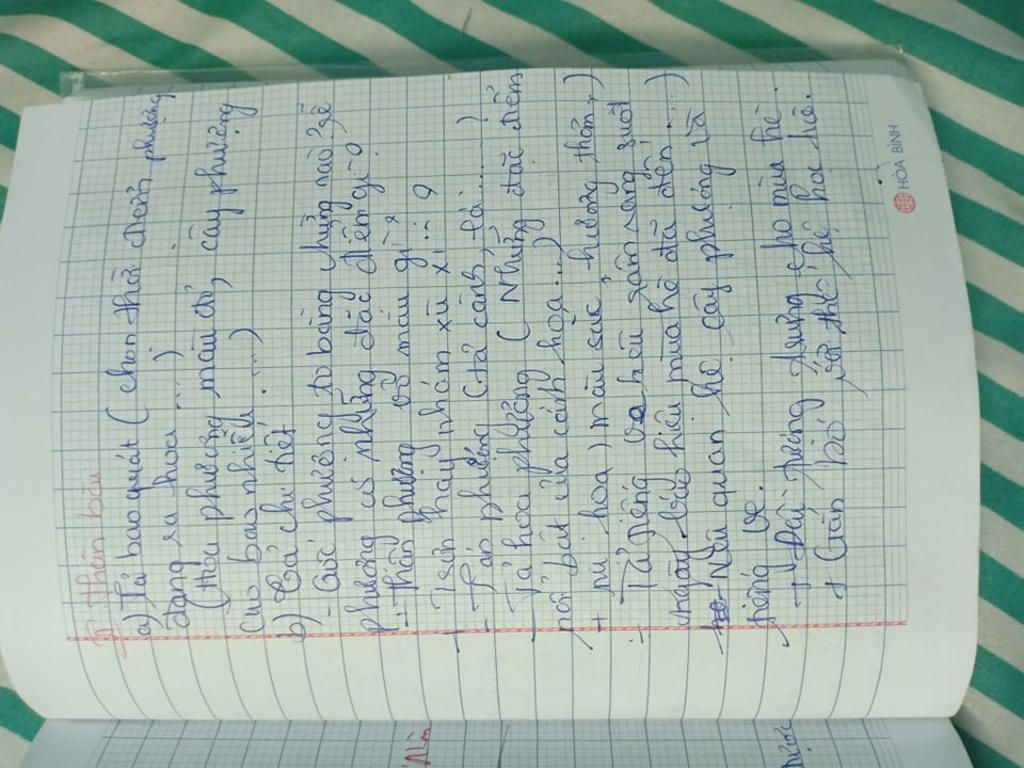 2, Thân bài
a) Tả bao quát (chọn thời điểm phượng
đang ra hoa ....)
(Hoa phượng màu đỏ, cây phượng
cao bao nhiêu ....)
b) Tả chi tiết
- Gốc phượng to bằng chừng nào, rễ
phượng có những đặc điểm gì?
- Thân phượng vỏ màu gì?
Trơn hay nhám xù xì...?
- Tán phượng (tả cành, lá.....)
- Tả hoa phượng (Những đặc điểm
nổi bật của cánh hoa...)
+ nụ hoa, màu sắc, hương thơm,)
- Tả tiếng ve suốt
ngày báo hiệu mùa hè đã đến...)
- Nêu quan hệ cây phượng và
tiếng ve.
+ Đặc trưng cho mùa hè.
+ Gắn bó với thế hệ học trò.
HÒA BÌNH